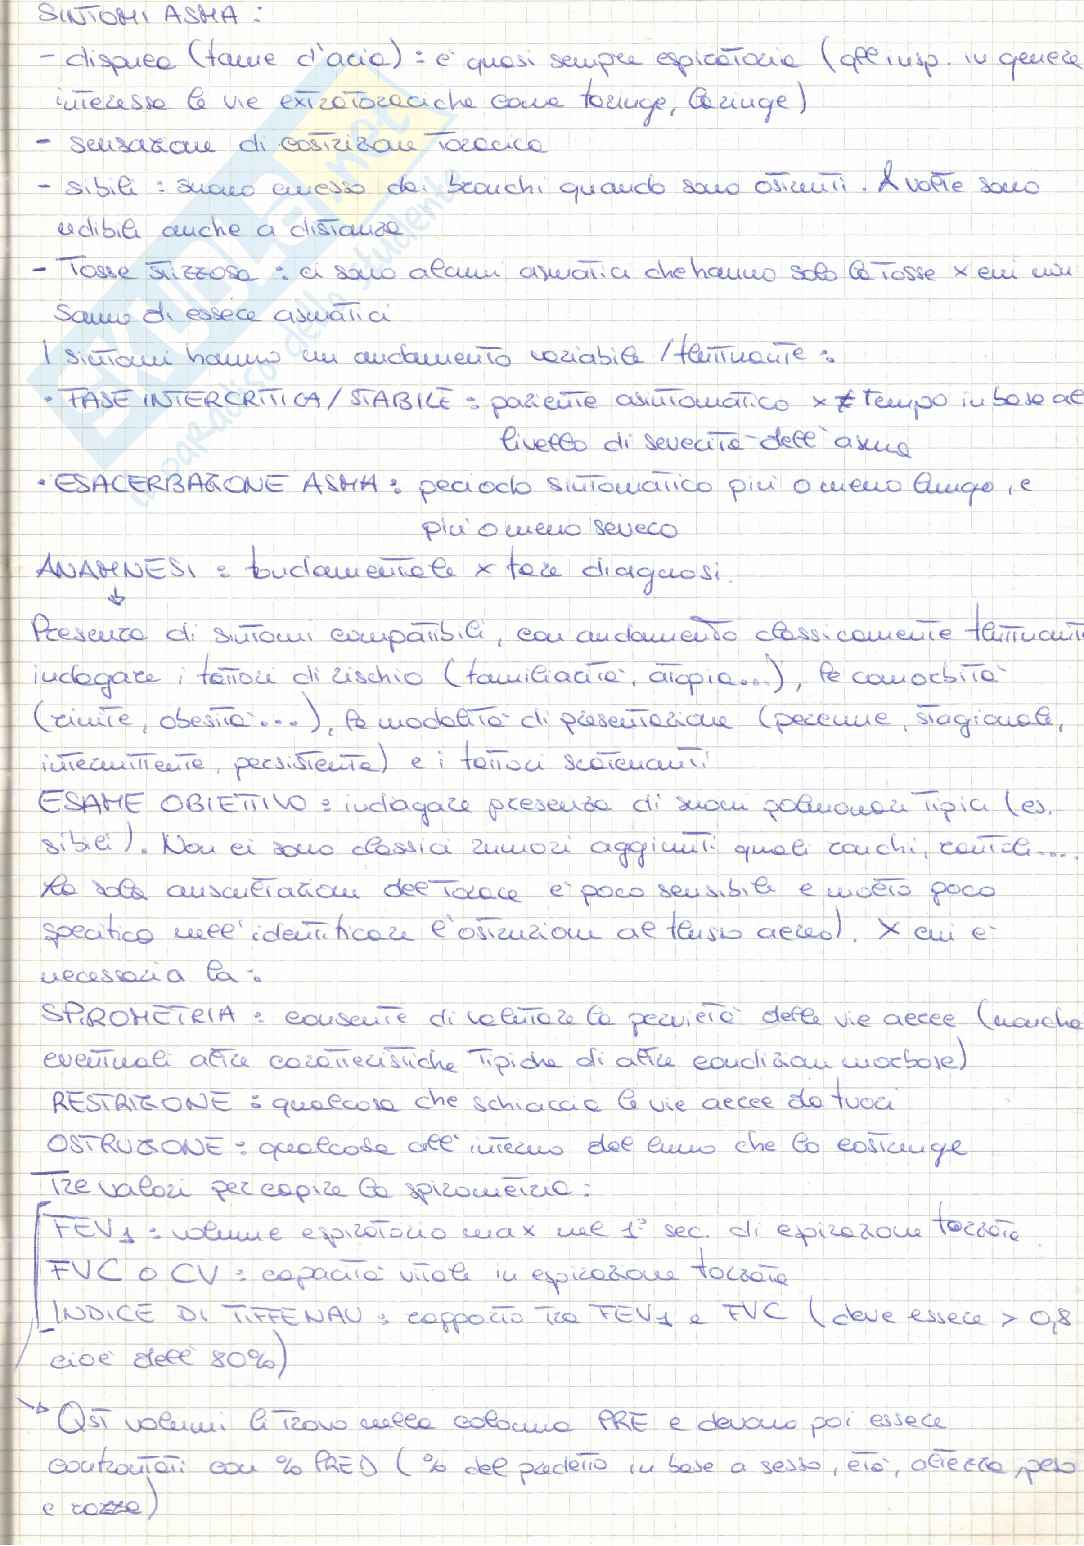 SINTOMI ASMA :
- dispnea (fame d'aria) : è quasi sempre espiratoria (qll insp. in genere
interessa le vie extratoraciche come faringe, laringe)
- sensazione di costrizione toracica
- sibili : suono emesso dai bronchi quando sono ostruiti. A volte sono
udibili anche a distanza
- Tosse stizzosa : ci sono alcuni asmatici che hanno solo la tosse x cui non
sanno di essere asmatici
I sintomi hanno un andamento variabile / fluttuante :
• FASE INTERCRITICA / STABILE : paziente asintomatico x ≠ tempo in base al
livello di severità dell'asma
• ESACERBAZIONE ASMA : periodo sintomatico più o meno lungo, e
più o meno severo
ANAMNESI : fondamentale x fare diagnosi.
↓
Presenza di sintomi compatibili, con andamento classicamente fluttuante
indagare i fattori di rischio (familiarità, atopia...), le comorbità
(rinite, obesità...), la modalità di presentazione (perenne, stagionale,
intermittente, persistente) e i fattori scatenanti
ESAME OBIETTIVO : indagare presenza di suoni polmonari tipici (es.
sibili). Non ci sono classici rumori aggiunti quali ronchi, rantoli....
La sola auscultazione del torace è poco sensibile e molto poco
specifica nell'identificare l'ostruzione al flusso aereo). X cui è
necessaria la :
SPIROMETRIA : consente di valutare la pervietà delle vie aeree (nonchè
eventuali altre caratteristiche tipiche di altre condizioni morbose)
RESTRIZIONE : qualcosa che schiaccia le vie aeree da fuori
OSTRUZIONE : qualcosa all'interno del lume che lo costringe
Tre valori per capire la spirometria :
FEV1 : volume espiratorio max nel 1° sec. di espirazione forzata
FVC o CV : capacità vitale in espirazione forzata
INDICE DI TIFFENAU : rapporto tra FEV1 e FVC (deve essere > 0,8
cioè dell' 80%)
→ Qsti volumi li trovo nella colonna PRE e devono poi essere
confrontati con % PRED (% del predetto in base a sesso, età, altezza, peso
e razza)
SKUOLA.net
il paradiso dello studente